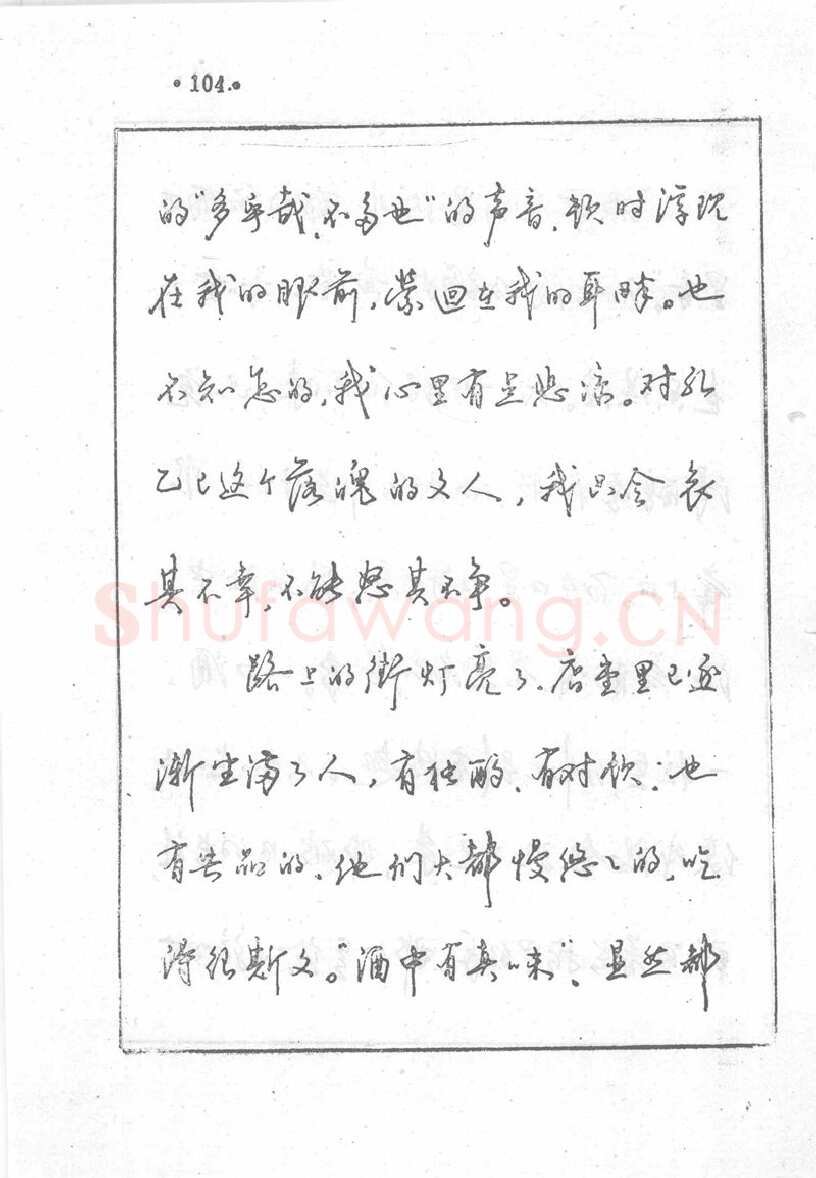 ·104·
的“多乎哉,不多也”的声音,顿时浮现
在我的眼前,萦迴在我的耳畔。也
不知怎的,我心里有点悲凉。对孔
乙己这个落魄的文人,我只会哀
其不幸,不能怒其不争。
路上的街灯亮了,店堂里已逐
渐坐满了人,有独酌、有对饮;也
有共品的,他们大都慢悠悠的,吃
得很斯文。“酒中有真味”,显然都
Shufawang.CN